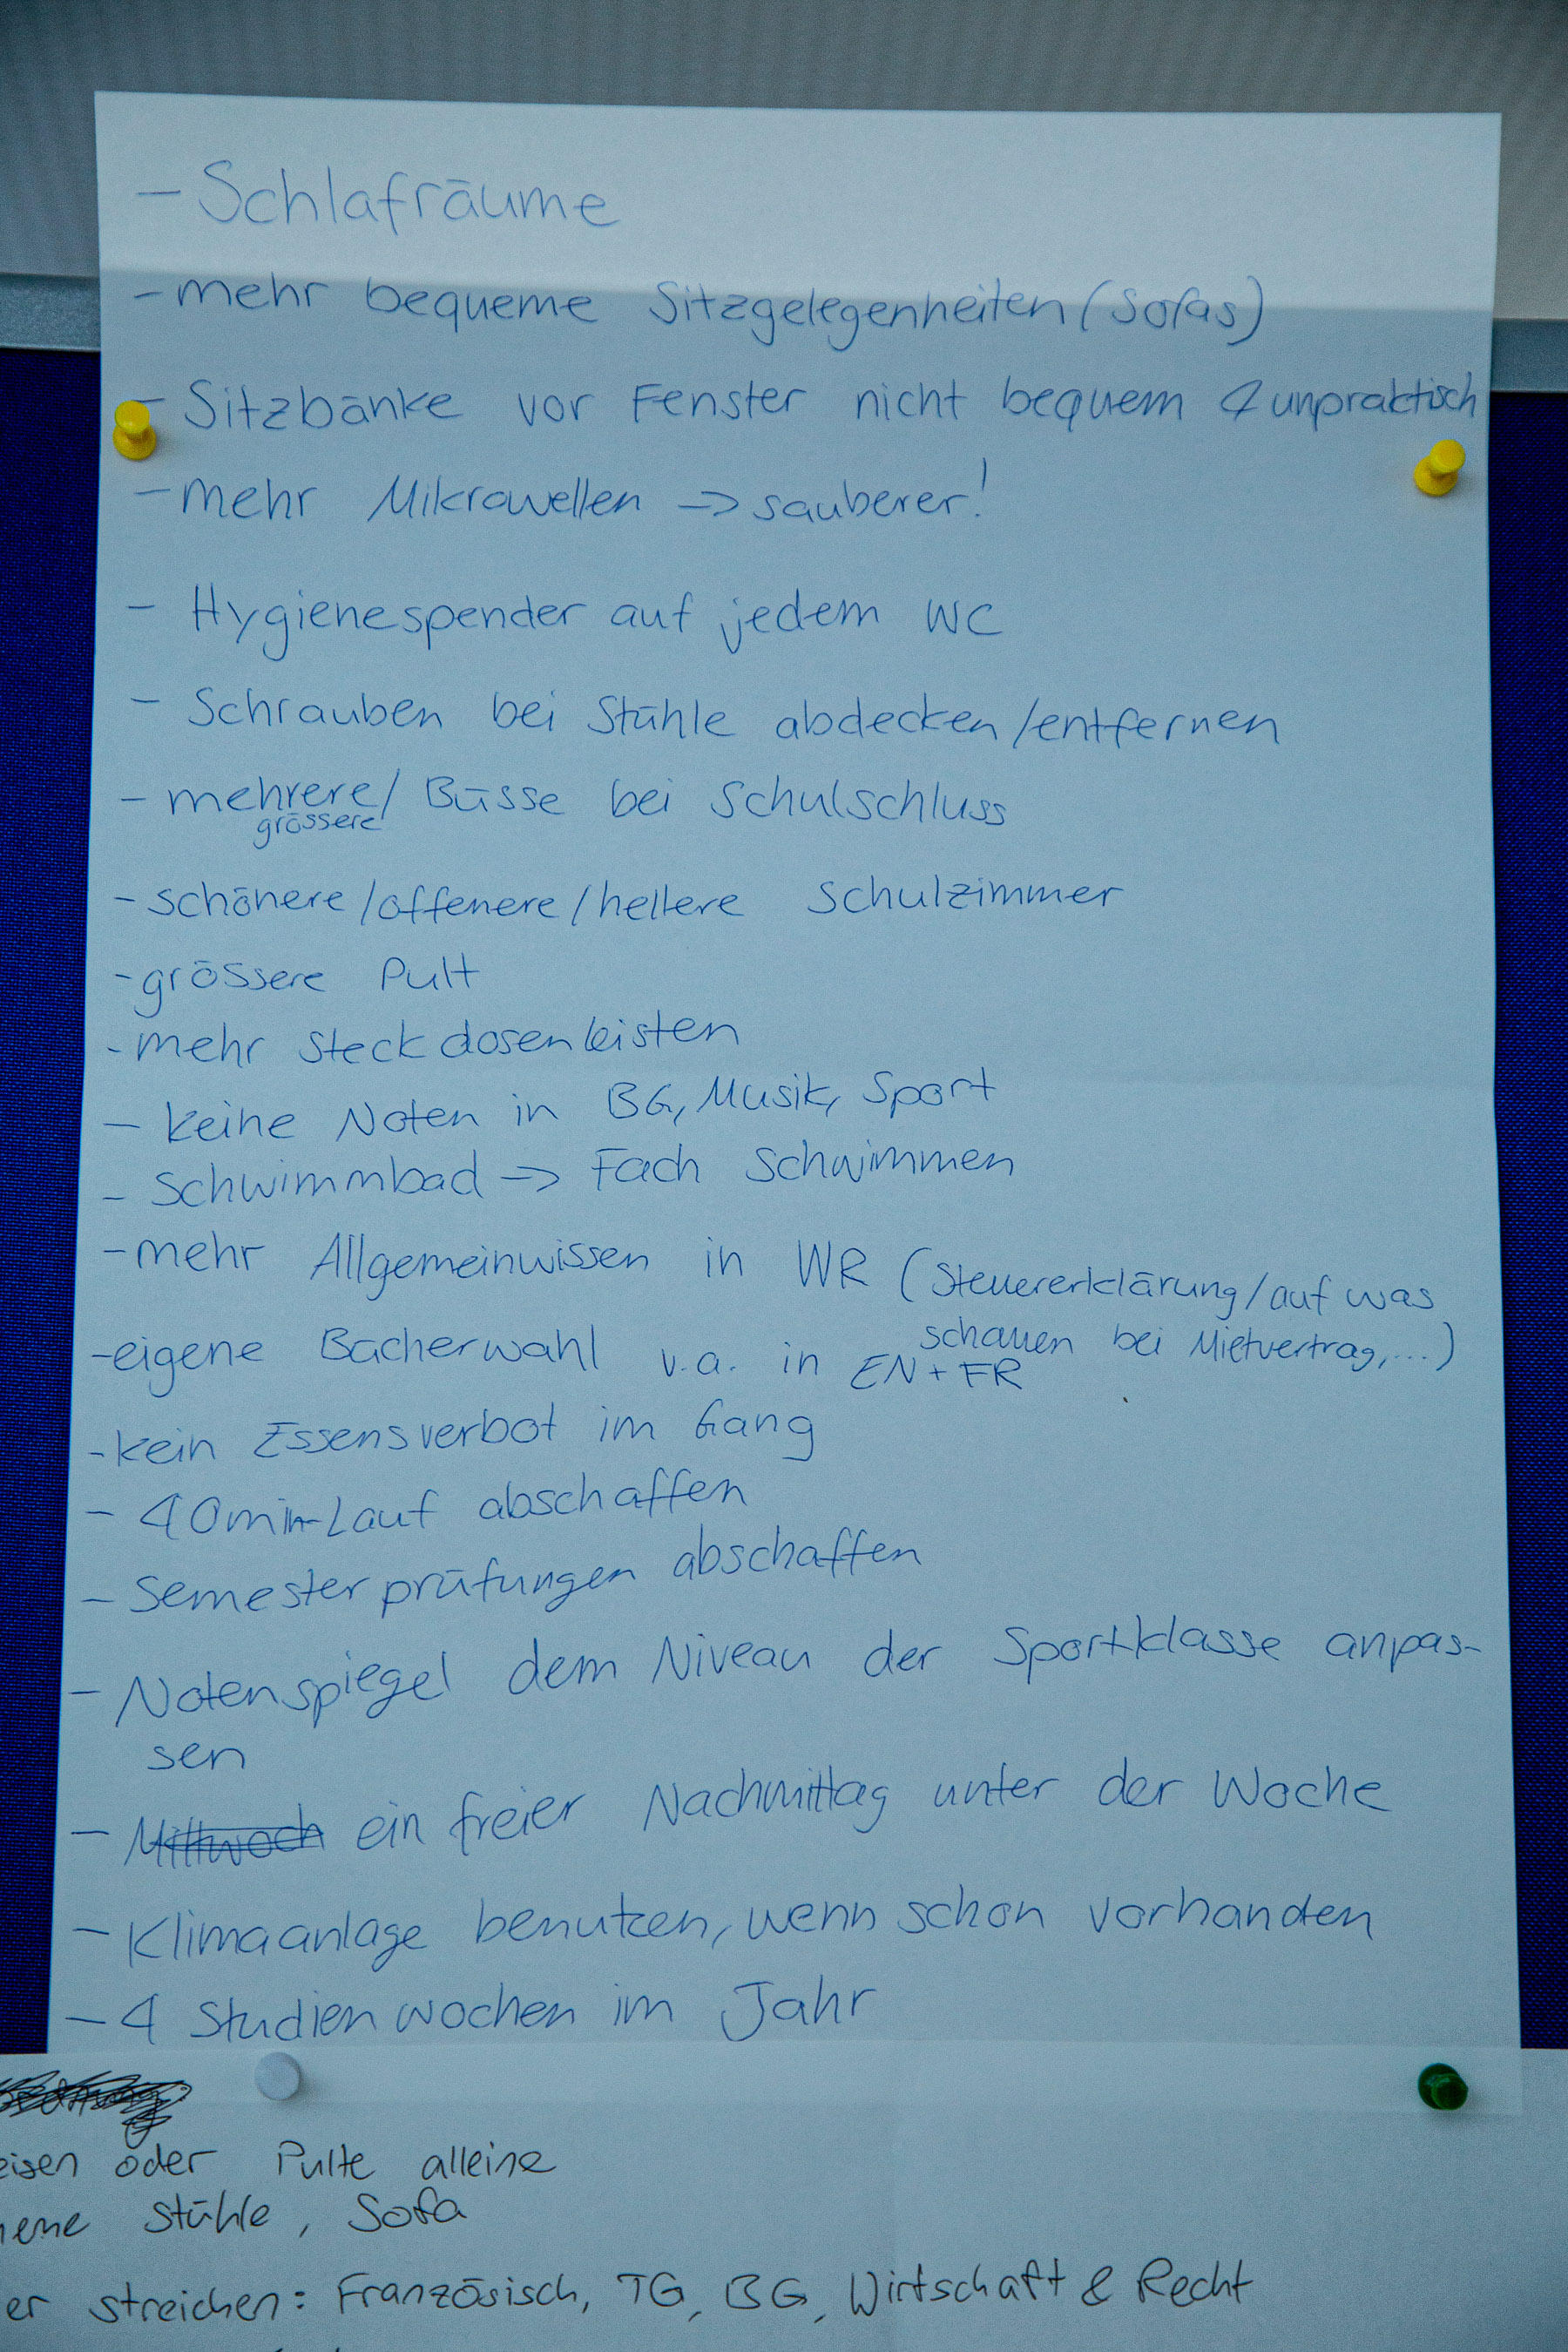 - Schlafräume
- mehr bequeme Sitzgelegenheiten (Sofas)
- Sitzbänke vor Fenster nicht bequem & unpraktisch
- mehr Mikrowellen -> sauberer!
- Hygienespender auf jedem WC
- Schrauben bei Stühle abdecken/entfernen
- mehrere/ Büsse bei Schulschluss
grössere
- schönere/offenere/hellere Schulzimmer
- grössere Pult
- mehr Steckdosenleisten
- keine Noten in BG, Musik, Sport
- Schwimmbad -> Fach Schwimmen
- mehr Allgemeinwissen in WR (Steuererklärung/auf was
schauen bei Mietvertrag,...)
- eigene Bücherwahl v.a. in EN + FR
- kein Essensverbot im Gang
- 40min-Lauf abschaffen
- Semesterprüfungen abschaffen
- Notenspiegel dem Niveau der Sportklasse anpas-
sen
- Mittwoch ein freier Nachmittag unter der Woche
- Klimaanlage benutzen, wenn schon vorhanden
- 4 Studienwochen im Jahr
eisen oder Pulte alleine
Stühle, Sofa
er streichen: Französisch, TG, BG, Wirtschaft & Recht